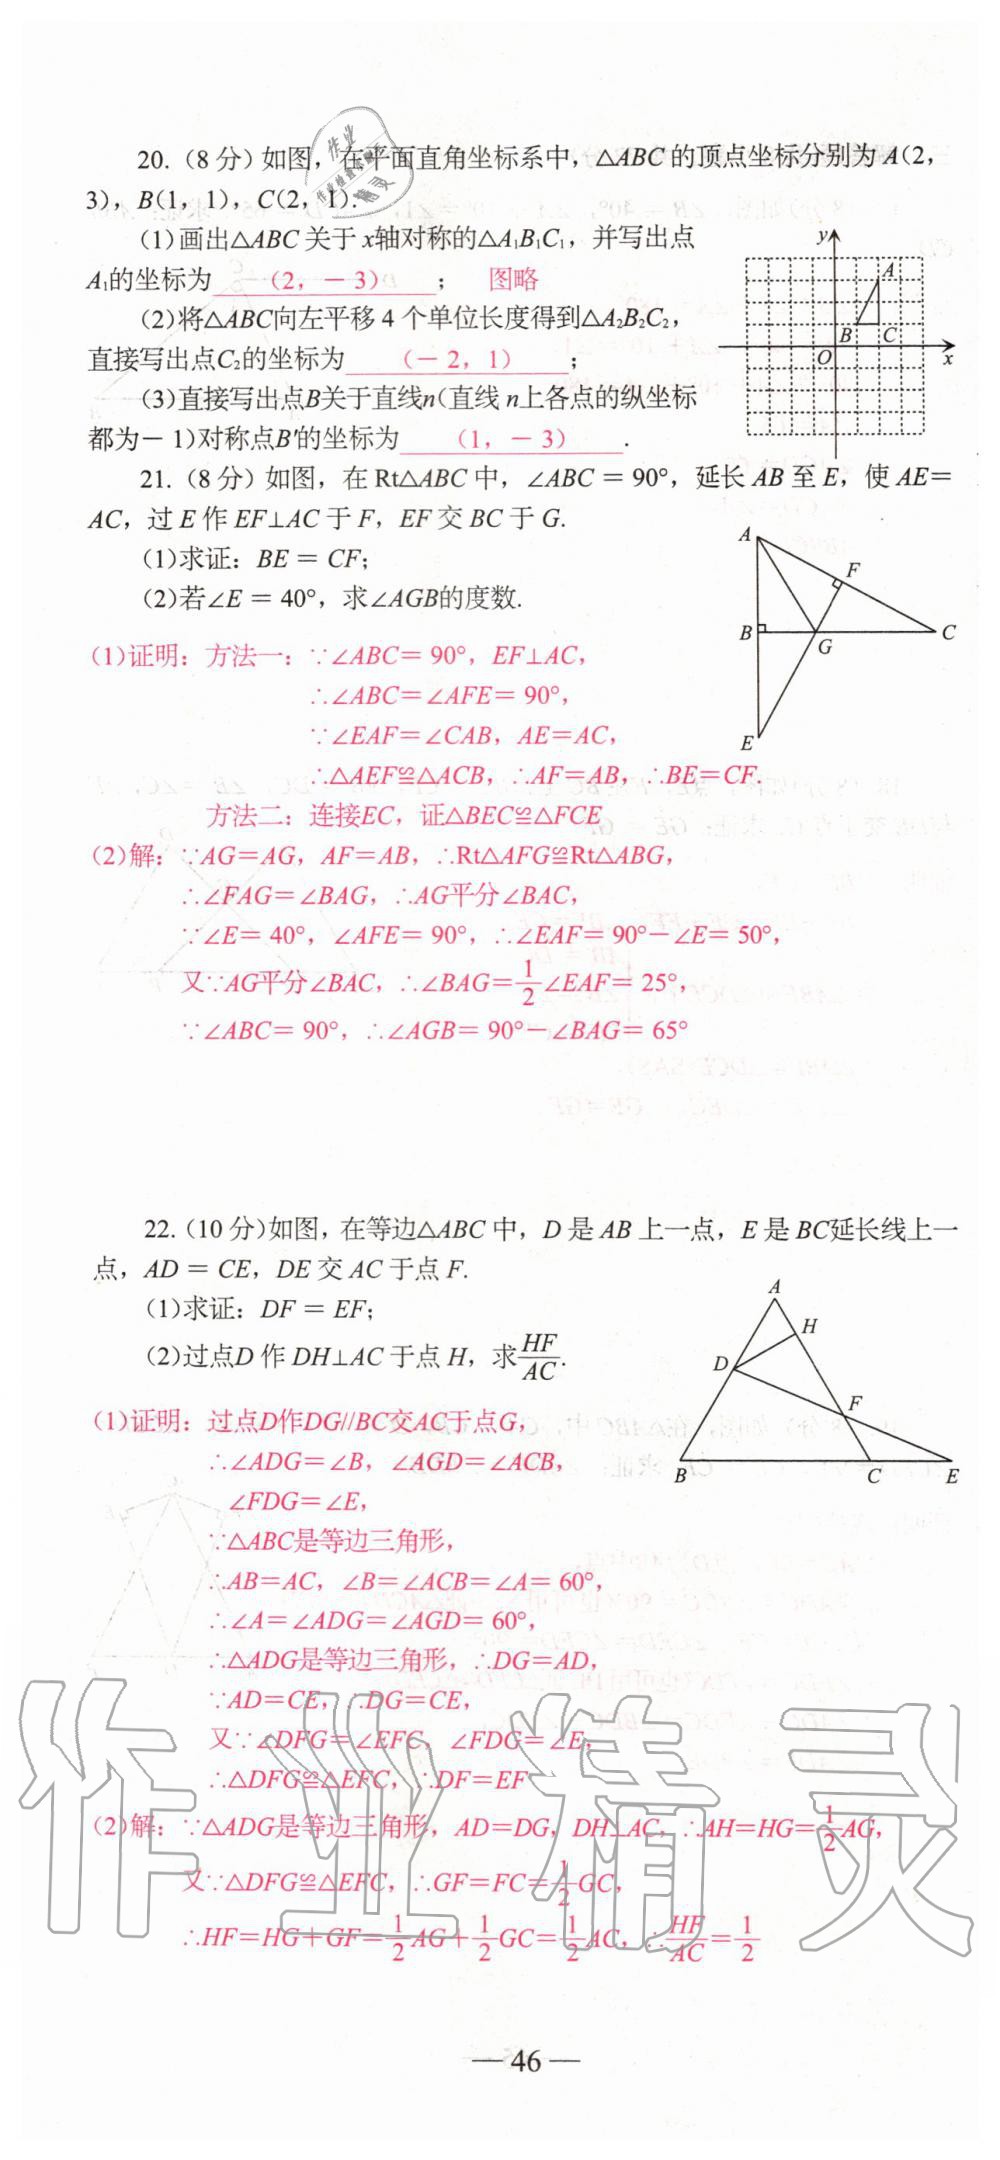 20.（8分）如图，在平面直角坐标系中，△ABC的顶点坐标分别为A(2，
3)，B(1，1)，C(2，1).
(1)画出△ABC关于x轴对称的△A₁B₁C₁，并写出点
A₁的坐标为 (2，－3) ； 图略
(2)将△ABC向左平移4个单位长度得到△A₂B₂C₂，
直接写出点C₂的坐标为 (－2，1) ；
(3)直接写出点B关于直线n(直线n上各点的纵坐标
都为－1)对称点B′的坐标为 (1，－3) .
y
A
B
C
O
x
21.（8分）如图，在Rt△ABC中，∠ABC＝90°，延长AB至E，使AE＝
AC，过E作EF⊥AC于F，EF交BC于G.
(1)求证：BE＝CF；
(2)若∠E＝40°，求∠AGB的度数.
A
F
B
G
C
E
(1)证明：方法一：∵∠ABC＝90°，EF⊥AC，
∴∠ABC＝∠AFE＝90°，
∵∠EAF＝∠CAB，AE＝AC，
∴△AEF≌△ACB，∴AF＝AB，∴BE＝CF.
方法二：连接EC，证△BEC≌△FCE
(2)解：∵AG＝AG，AF＝AB，∴Rt△AFG≌Rt△ABG，
∴∠FAG＝∠BAG，∴AG平分∠BAC，
∵∠E＝40°，∠AFE＝90°，∴∠EAF＝90°－∠E＝50°，
又∵AG平分∠BAC，∴∠BAG＝1/2∠EAF＝25°，
∵∠ABC＝90°，∴∠AGB＝90°－∠BAG＝65°
22.（10分）如图，在等边△ABC中，D是AB上一点，E是BC延长线上一
点，AD＝CE，DE交AC于点F.
(1)求证：DF＝EF；
(2)过点D作DH⊥AC于点H，求HF/AC.
A
H
D
F
B
C
E
(1)证明：过点D作DG//BC交AC于点G，
∴∠ADG＝∠B，∠AGD＝∠ACB，
∠FDG＝∠E，
∵△ABC是等边三角形，
∴AB＝AC，∠B＝∠ACB＝∠A＝60°，
∴∠A＝∠ADG＝∠AGD＝60°，
∴△ADG是等边三角形，∴DG＝AD，
∵AD＝CE，∴DG＝CE，
又∵∠DFG＝∠EFC，∠FDG＝∠E，
∴△DFG≌△EFC，∵DF＝EF
(2)解：∵△ADG是等边三角形，AD＝DG，DH⊥AC，∴AH＝HG＝1/2AG，
又∵△DFG≌△EFC，∴GF＝FC＝1/2GC，
∴HF＝HG＋GF＝1/2AG＋1/2GC＝1/2AC，∴HF/AC＝1/2
作业精灵
—46—